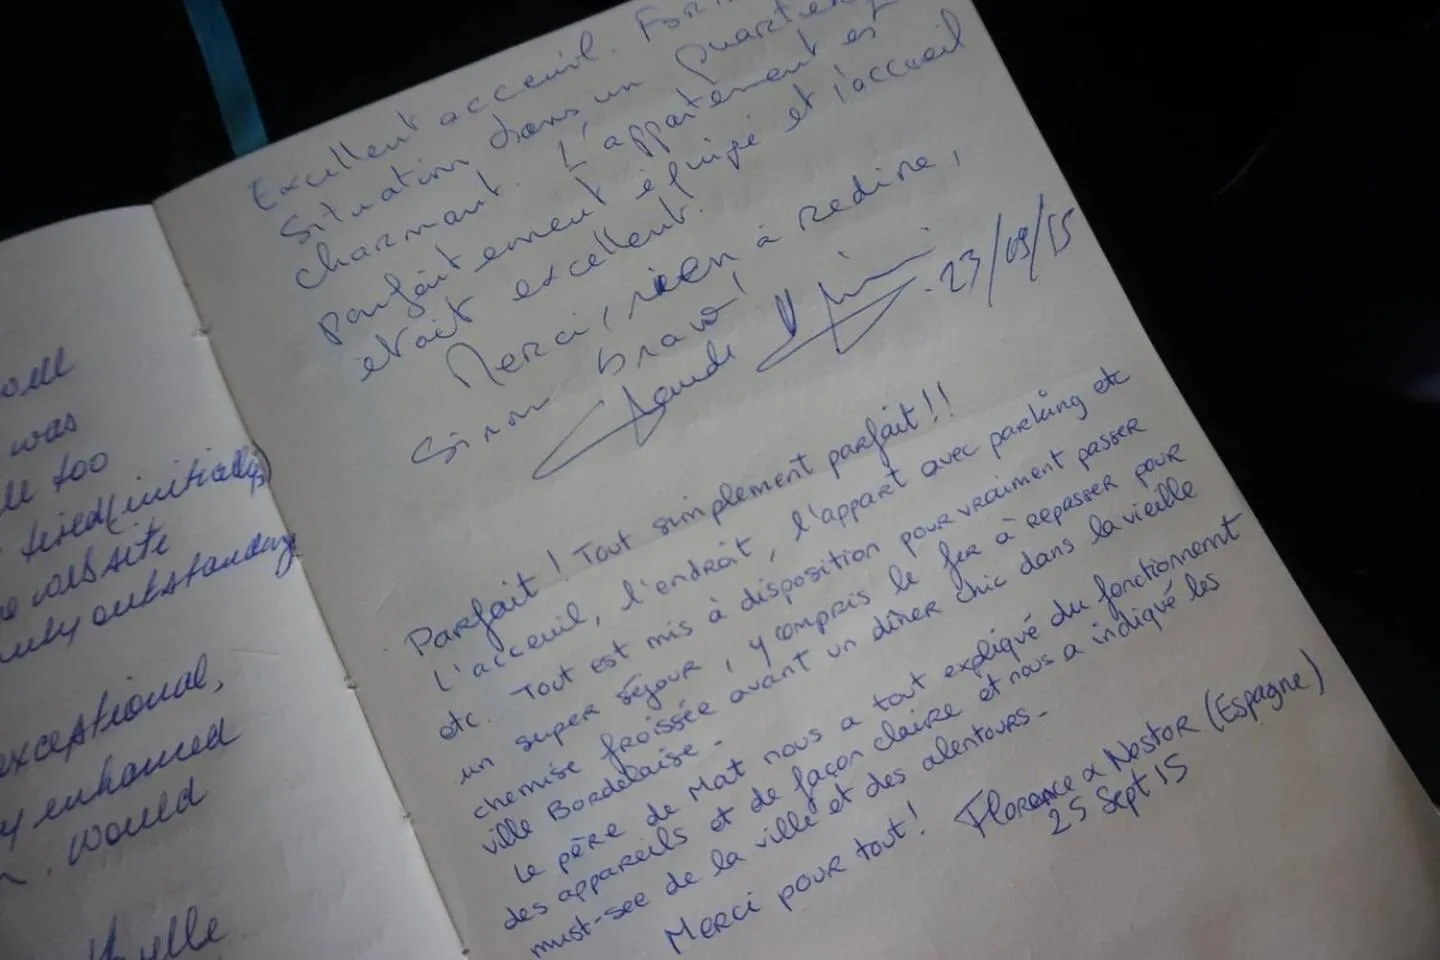 was
too
tired (initially)
website
outstanding
exceptional,
enhanced
would
Excellent acceuil.
Situation dans un quartier
charmant. L'appartement est
parfaitement équipé et l'accueil
etait excellent.
Merci, rien à redire,
Sinon bravo!
Claude
23/09/15
Parfait! Tout simplement parfait!!
L'acceuil, l'endroit, l'appart avec parking etc
etc. Tout est mis à disposition pour vraiment passer
un super séjour, y compris le fer à repasser pour
chemise froissée avant un dîner chic dans la vieille
ville Bordelaise.
Le père de Mat nous a tout expliqué du fonctionnemt
des appareils et de façon claire et nous a indiqué les
must-see de la ville et des alentours.
Merci pour tout! Florence & Nostor (Espagne)
25 Sept 15